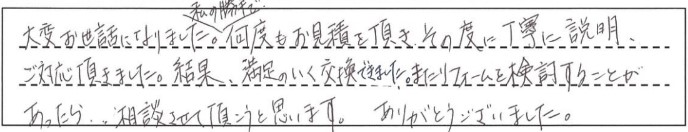 私の勝手で
大変お世話になりました。何度もお見積を頂き、その度に丁寧に説明、
ご対応頂きました。結果、満足のいく交換できました。またリフォームを検討することが
あったら、、相談させて頂こうと思います。 ありがとうございました。